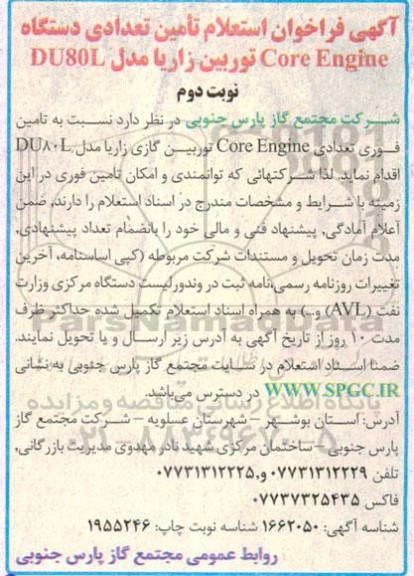 آگهی فراخوان استعلام تأمین تعدادی دستگاه
Core Engine توربین زاریا مدل DU80L
نوبت دوم
شرکت مجتمع گاز پارس جنوبی در نظر دارد نسبت به تامین
فوری تعدادی Core Engine توربین گازی زاریا مدل DU۸۰L
اقدام نماید. لذا شرکتهائی که توانمندی و امکان تامین فوری در این
زمینه با شرایط و مشخصات مندرج در اسناد استعلام را دارند، ضمن
اعلام آمادگی، پیشنهاد فنی و مالی خود را بانضمام تعداد پیشنهادی،
مدت زمان تحویل و مستندات شرکت مربوطه (کپی اساسنامه، آخرین
تغییرات روزنامه رسمی،نامه ثبت در وندورلیست دستگاه مرکزی وزارت
نفت (AVL) و...) به همراه اسناد استعلام تکمیل شده حداکثر ظرف
مدت ۱۰ روز از تاریخ آگهی به آدرس زیر ارسال و یا تحویل نمایند.
ضمنا اسناد استعلام در سایت مجتمع گاز پارس جنوبی به نشانی
WWW.SPGC.IR در دسترس می‌باشد.
پایگاه اطلاع رسانی مناقصه و مزایده
آدرس: استان بوشهر – شهرستان عسلویه – شرکت مجتمع گاز
پارس جنوبی – ساختمان مرکزی شهید نادر مهدوی مدیریت بازرگانی،
تلفن ۰۷۷۳۱۳۱۲۲۲۹ و ۰۷۷۳۱۳۱۲۲۲۵،
فاکس ۰۷۷۳۷۳۲۵۴۳۵
شناسه آگهی: ۱۶۶۲۰۵۰ شناسه نوبت چاپ: ۱۹۵۵۲۴۶
روابط عمومی مجتمع گاز پارس جنوبی